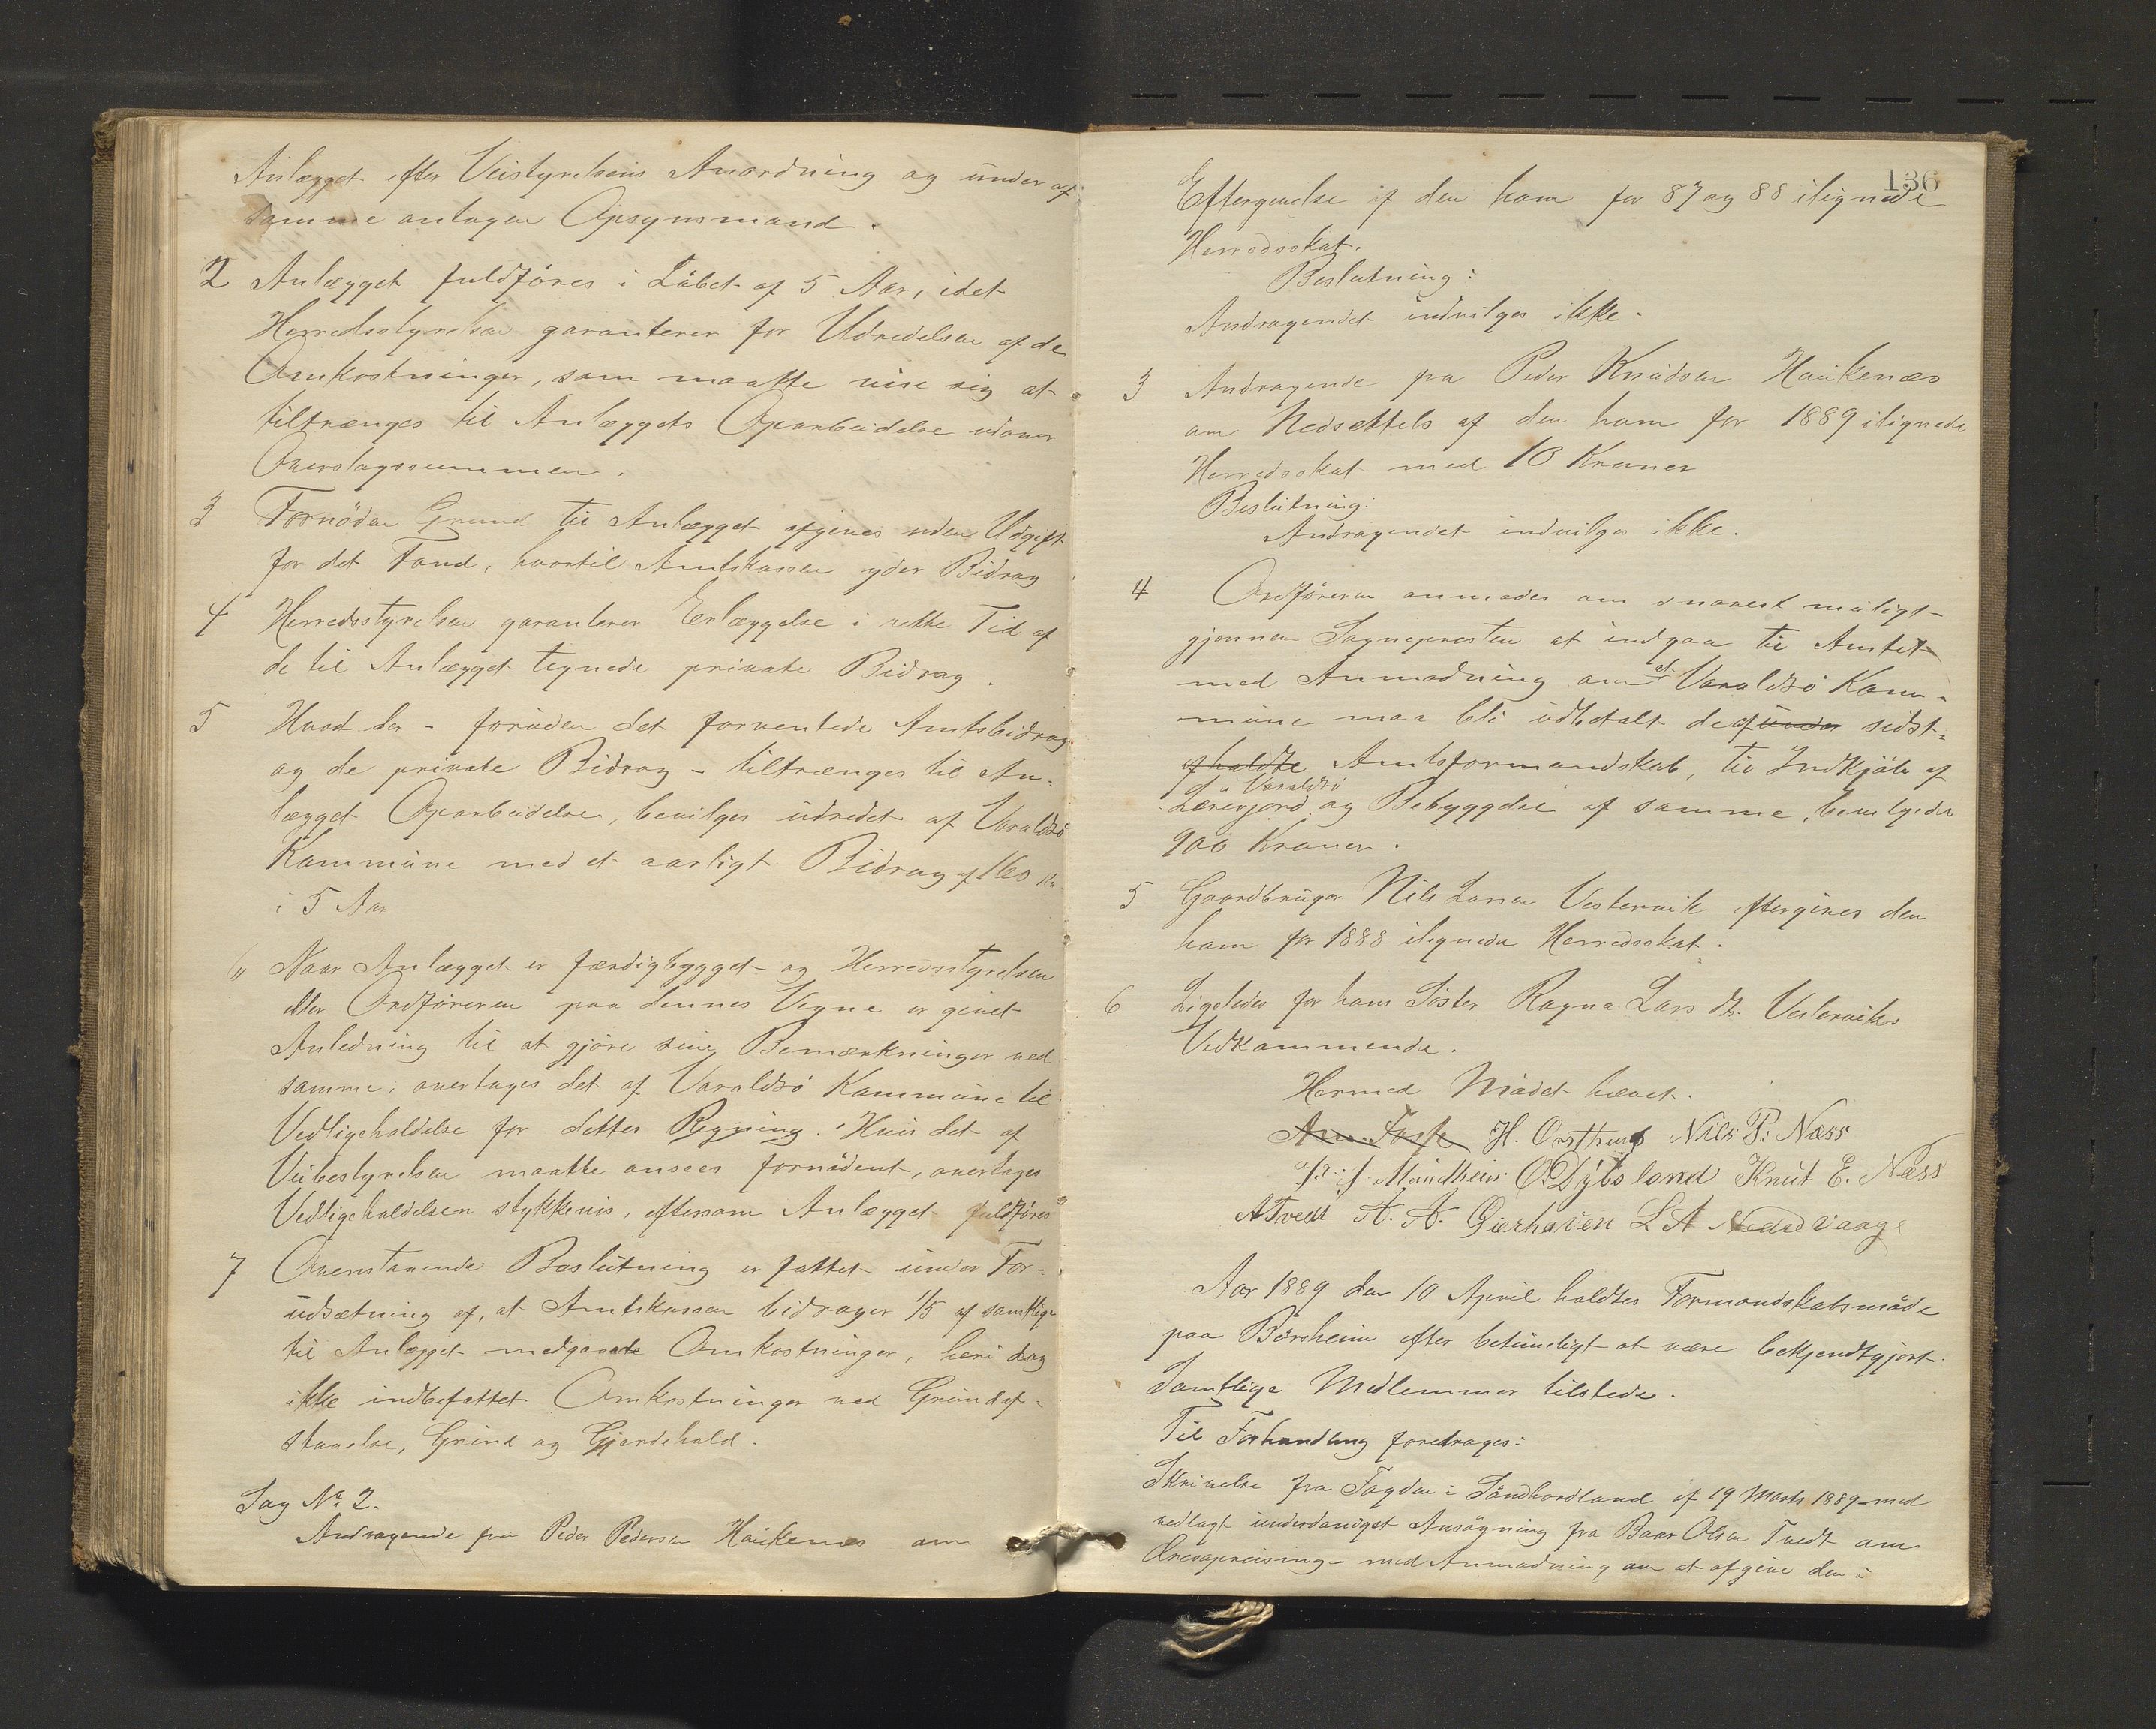 Anlægget efter Veistyrelsens Anordning og under af
samme antagen Opsynsmand.
2 Anlægget fuldføres i Løbet af 5 Aar, idet
Herredsstyrelsen garanterer for Udredelsen af de
Omkostninger, som maatte vise sig at
tiltrænges til Anlæggets Oparbeidelse udover
Overslagssummen.
3 Fornøden Grund til Anlægget afgives uden Udgift
for det Fond, hvortil Amtskassen yder Bidrag
4 Herredsstyrelsen garanterer Erlæggelse i rette Tid af
de til Anlægget tegnede private Bidrag.
5 Hvad der - foruden det forventede Amtsbidrag
og de private Bidrag - tiltrænges til An-
lægget Oparbeidelse, bevilges udredet af Varaldsø
Kommune med et aarligt Bidrag af 160 Kr
i 5 Aar
6 Naar Anlægget er færdigbygget og Herredsstyrelsen
eller Ordføreren paa dennes Vegne er givet
Anledning til at gjøre sine Bemærkninger ved
samme, overtages det af Varaldsø Kommune til
Vedligeholdelse for dettes Regning. Hvis det af
Veibestyrelsen maatte ansees fornødent, overtages
Vedligeholdelsen stykkevis, eftersom Anlægget fuldføres
7 Ovenstaaende Beslutning er fattet under For-
udsætning af, at Amtskassen bidrager 1/5 af samtlige
til Anlægget medgaaede Omkostninger, heri dog
ikke indbefattet Omkostninger ved Grundaf-
staaelse, Grind og Gjerdehold.
Sag No 2.
Andragende fra Peder Pedersen Haukenes om
136
Eftergivelse af den ham for 87 og 88 ilignede
Herredsskat.
Beslutning:
Andragendet indvilges ikke.
3 Andragende fra Peder Knudsen Haukenæs
om Nedsættels af den ham for 1889 ilignede
Herredsskat med 10 Kroner
Beslutning:
Andragendet indvilges ikke.
4 Ordføreren anmodes om snarest muligt
gjennem Sognepresten at indgaa til Amtet
med Anmodning om at Varaldsø Kom-
mune maa bli udbetalt de af under sidst-
afholdte Amtsformandskab, til Indkjøb af
Lærerjord i Varaldsø og Bebyggelse af samme, bevilgede
900 Kroner.
5 Gaardbruger Nils Larsen Vestervik eftergives den
ham for 1888 ilignede Herredsskat.
6 Ligeledes for hans Søster Ragna Lars dt. Vesterviks
Vedkommende.
Hermed Mødet hævet.
H. Nils P. Næss
Mundheim O. Dybsland Knut E. Næss
A Tvedt A. A. Gierhaven L A Nedrevaage
Aar 1889 den 10 April holdtes Formandskabsmøde
paa Børsheim efter betimeligt at være bekjendtgjort.
Samtlige Medlemmer tilstede.
Til Forhandling foredrages:
Skrivelse fra Fogden i Søndhordland af 19 Marts 1889 med
vedlagt underdanigst Ansøgning fra Baar Olsen Tvedt om
Æresopreising - med Anmodning om at afgive den i